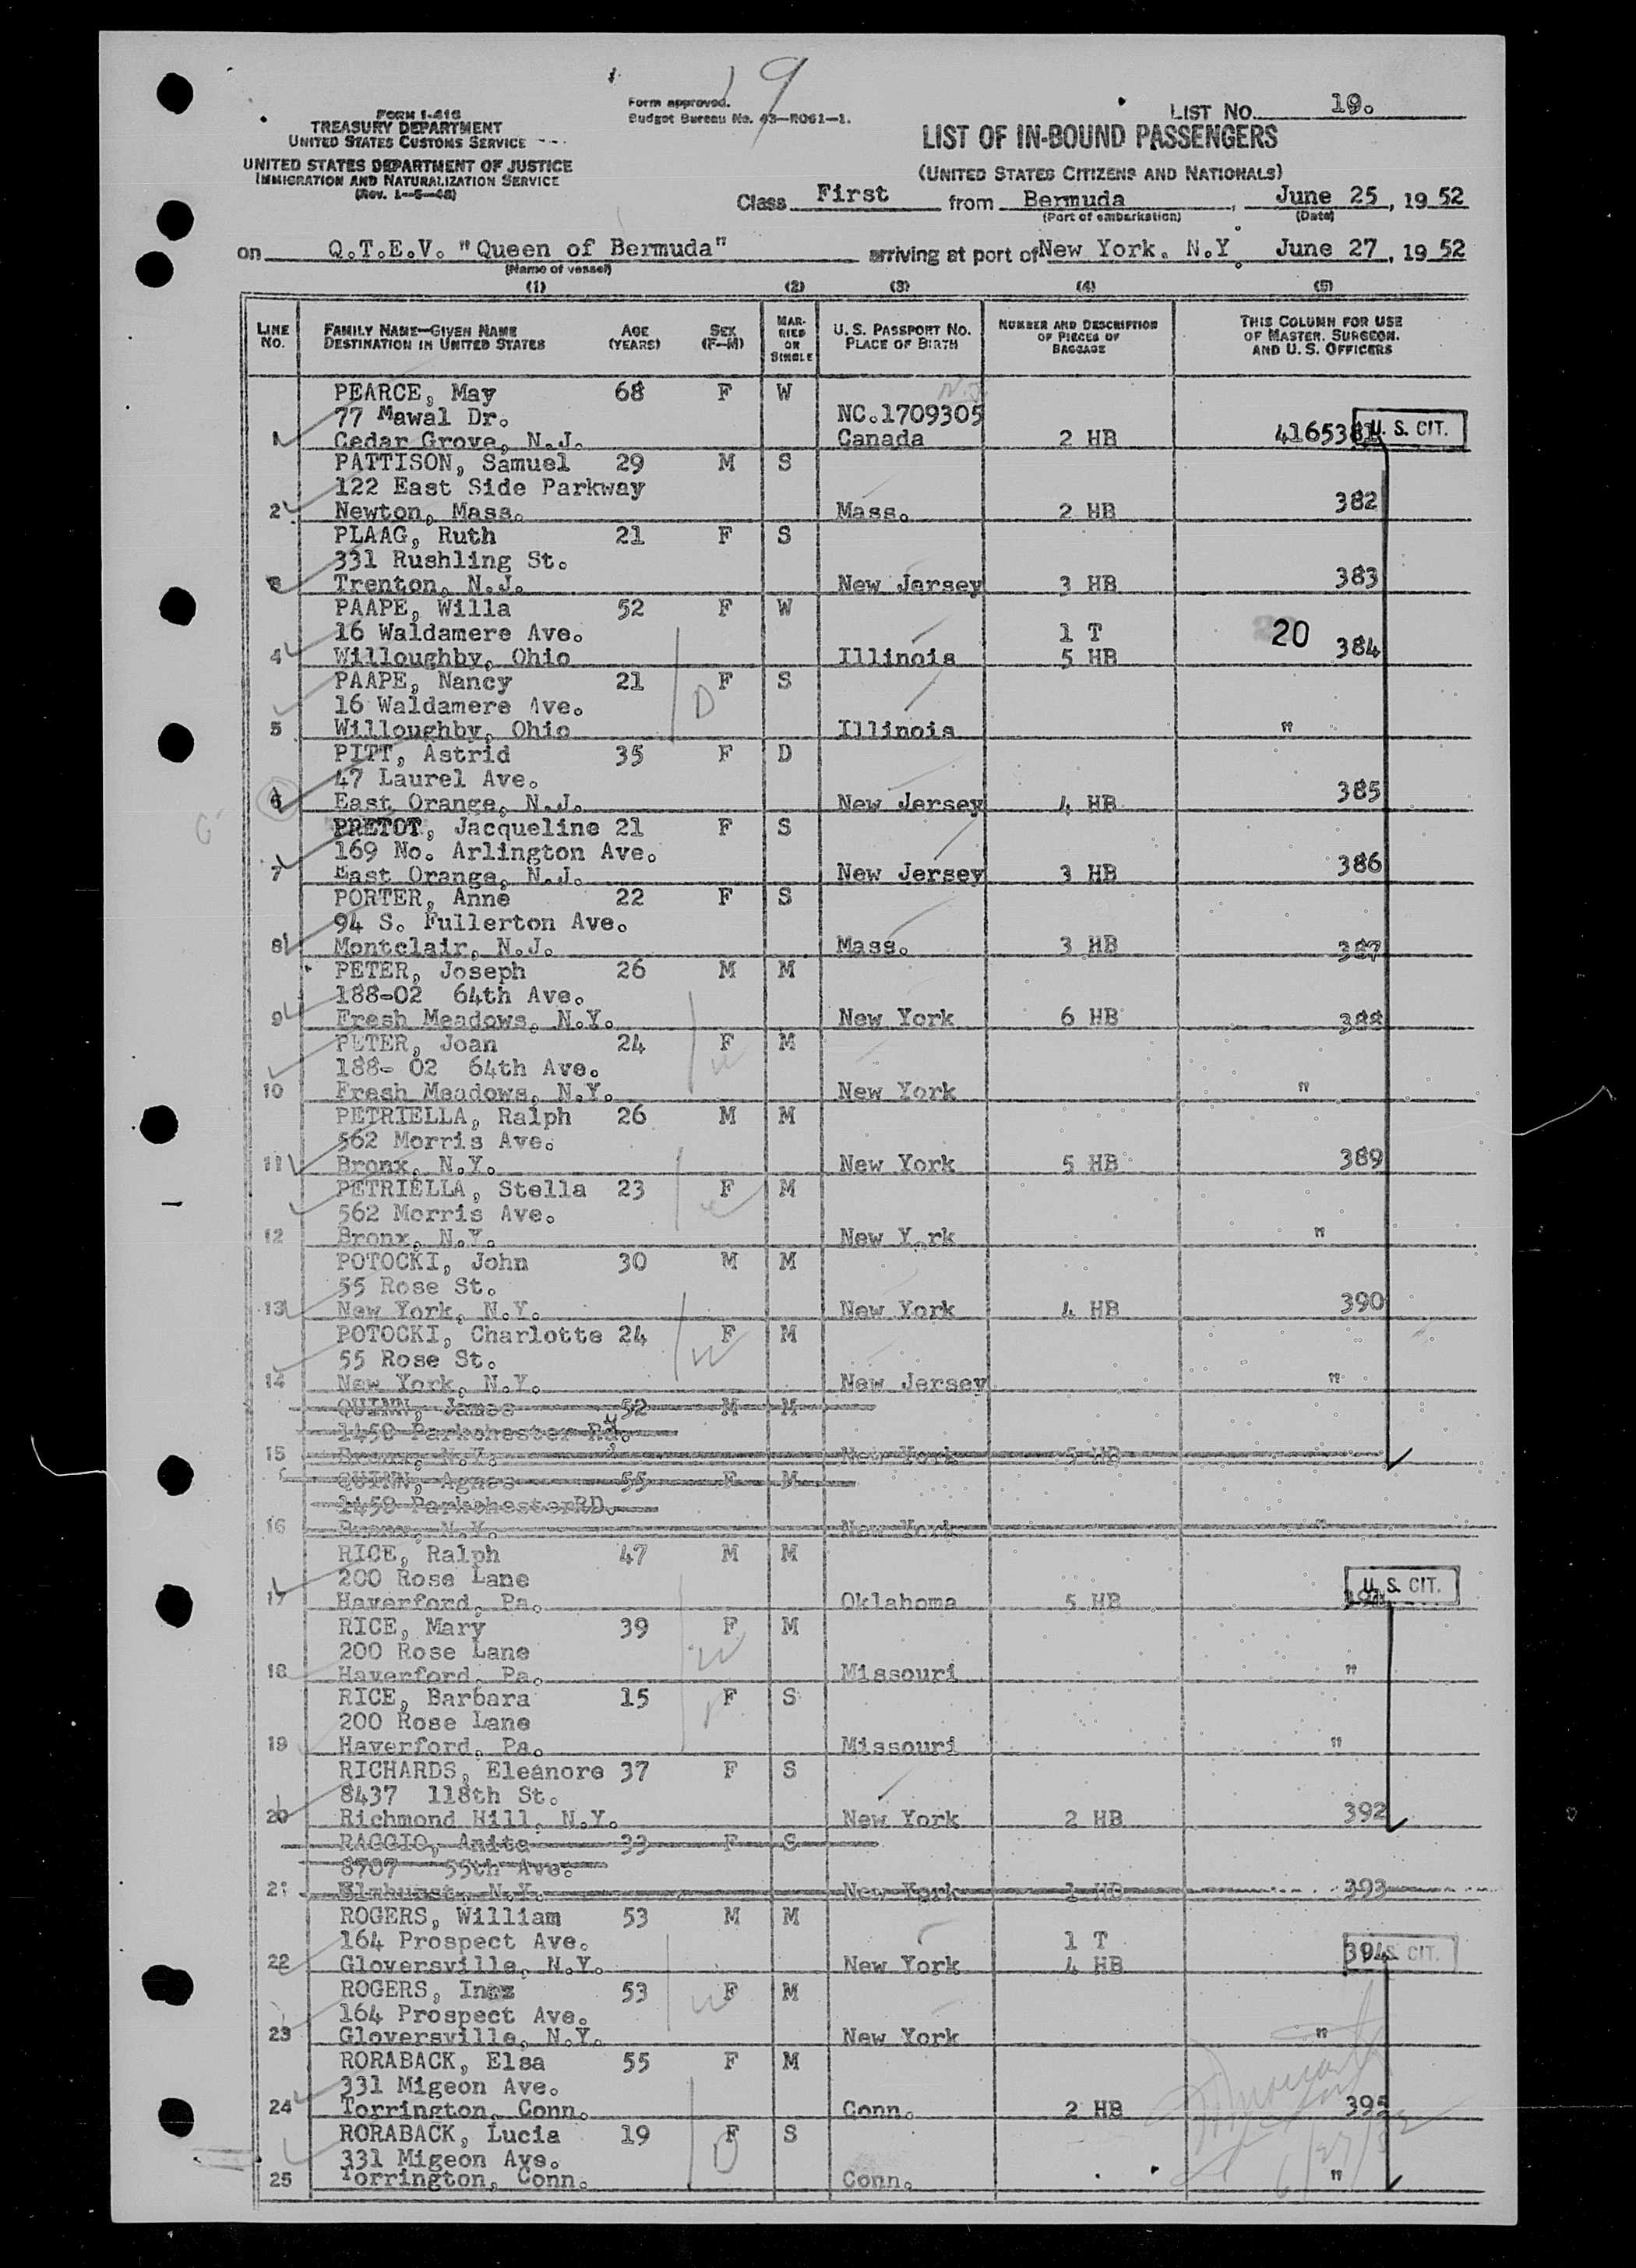 19
FORM I-416
TREASURY DEPARTMENT
UNITED STATES CUSTOMS SERVICE
UNITED STATES DEPARTMENT OF JUSTICE
IMMIGRATION AND NATURALIZATION SERVICE
(Rev. 1-5-48)
Form approved.
Budget Bureau No. 43-R061-1.
LIST NO. 19.
LIST OF IN-BOUND PASSENGERS
(UNITED STATES CITIZENS AND NATIONALS)
Class First from Bermuda, June 25, 1952
(Port of embarkation) (Date)
on Q.T.E.V. "Queen of Bermuda" arriving at port of New York. N.Y. June 27, 1952
(Name of vessel)
(1) (2) (3) (4) (5)
LINE NO. FAMILY NAME—GIVEN NAME DESTINATION IN UNITED STATES AGE (YEARS) SEX (F—M) MARRIED OR SINGLE U. S. PASSPORT NO. PLACE OF BIRTH NUMBER AND DESCRIPTION OF PIECES OF BAGGAGE THIS COLUMN FOR USE OF MASTER, SURGEON, AND U. S. OFFICERS
PEARCE, May 68 F W N.J.
77 Mawal Dr. NC.1709305
1 Cedar Grove, N.J. Canada 2 HB 4165381 U. S. CIT.
PATTISON, Samuel 29 M S
122 East Side Parkway
2 Newton, Mass. Mass. 2 HB 382
PLAAG, Ruth 21 F S
331 Rushling St.
3 Trenton, N.J. New Jersey 3 HB 383
PAAPE, Willa 52 F W
16 Waldamere Ave. 1 T 20
4 Willoughby, Ohio Illinois 5 HB 384
PAAPE, Nancy 21 F S
16 Waldamere Ave. D
5 Willoughby, Ohio Illinois "
PITT, Astrid 35 F D
47 Laurel Ave.
6 East Orange, N.J. New Jersey 4 HB 385
PRETOT, Jacqueline 21 F S
169 No. Arlington Ave.
7 East Orange, N.J. New Jersey 3 HB 386
PORTER, Anne 22 F S
94 S. Fullerton Ave.
8 Montclair, N.J. Mass. 3 HB 387
PETER, Joseph 26 M M
188-02 64th Ave.
9 Fresh Meadows, N.Y. New York 6 HB 388
PETER, Joan 24 F M
188- 02 64th Ave. W
10 Fresh Meadows, N.Y. New York "
PETRIELLA, Ralph 26 M M
562 Morris Ave.
11 Bronx, N.Y. New York 5 HB 389
PETRIELLA, Stella 23 F M
562 Morris Ave.
12 Bronx, N.Y. New York "
POTOCKI, John 30 M M
55 Rose St.
13 New York, N.Y. New York 4 HB 390
POTOCKI, Charlotte 24 F M
55 Rose St. W
14 New York, N.Y. New Jersey "
QUINN, James 52 M M
1450 Parkchester Rd.
15 Bronx, N.Y. New York 5 HB
QUINN, Agnes 55 F M
1450 ParkchesterRD.
16 Bronx, N.Y. New York "
RICE, Ralph 47 M M
200 Rose Lane
17 Haverford, Pa. Oklahoma 5 HB U. S. CIT.
RICE, Mary 39 F M
200 Rose Lane W
18 Haverford, Pa. Missouri "
RICE, Barbara 15 F S
200 Rose Lane
19 Haverford, Pa. Missouri "
RICHARDS, Eleanore 37 F S
8437 118th St.
20 Richmond Hill, N.Y. New York 2 HB 392
RAGGIO, Anita 33 F S
8707 55th Ave.
21 Elmhurst, N.Y. New York 1 HB 393
ROGERS, William 53 M M
164 Prospect Ave. 1 T
22 Gloversville, N.Y. New York 4 HB 394 U. S. CIT.
ROGERS, Inez 53 F M
164 Prospect Ave. W
23 Gloversville, N.Y. New York "
RORABACK, Elsa 55 F M
331 Migeon Ave.
24 Torrington, Conn. Conn. 2 HB 395
RORABACK, Lucia 19 F S
331 Migeon Ave. D
25 Torrington, Conn. Conn. "
6/27/52